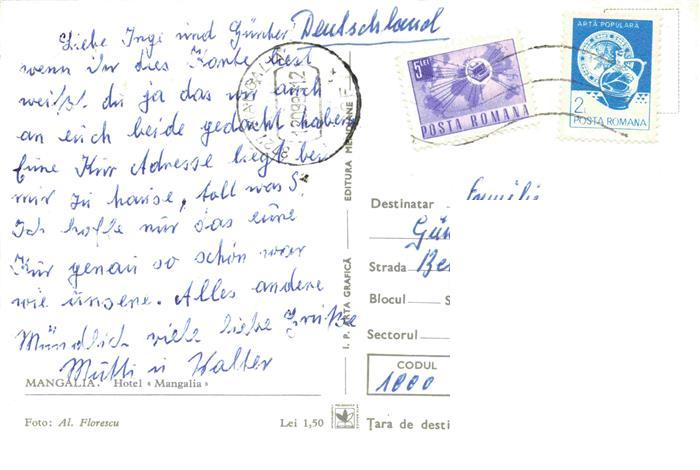 Deutschland
Liebe Inge und Günther
wenn ihr dies Karte liest
weißt du ja das wir auch
an euch beide gedacht haben
Eüne Kür Adresse liegt bei
mir zu hause, toll was S.
Ich hoffe nür das eüre
Kür genau so schön war
wie ünsere. Alles andere
Mündlich viele liebe Grüße
Mütti ü Walter
MANGALIA. Hotel « Mangalia »
Foto: Al. Florescu
Lei 1,50
I. P. ARTA GRAFICĂ
EDITURA MERIDIANE
5 LEI
POSTA ROMANA
ARTĂ POPULARĂ
2L
POSTA ROMANA
Destinatar Famili
Gün
Strada Be
Blocul S
Sectorul
CODUL
1000
Țara de desti